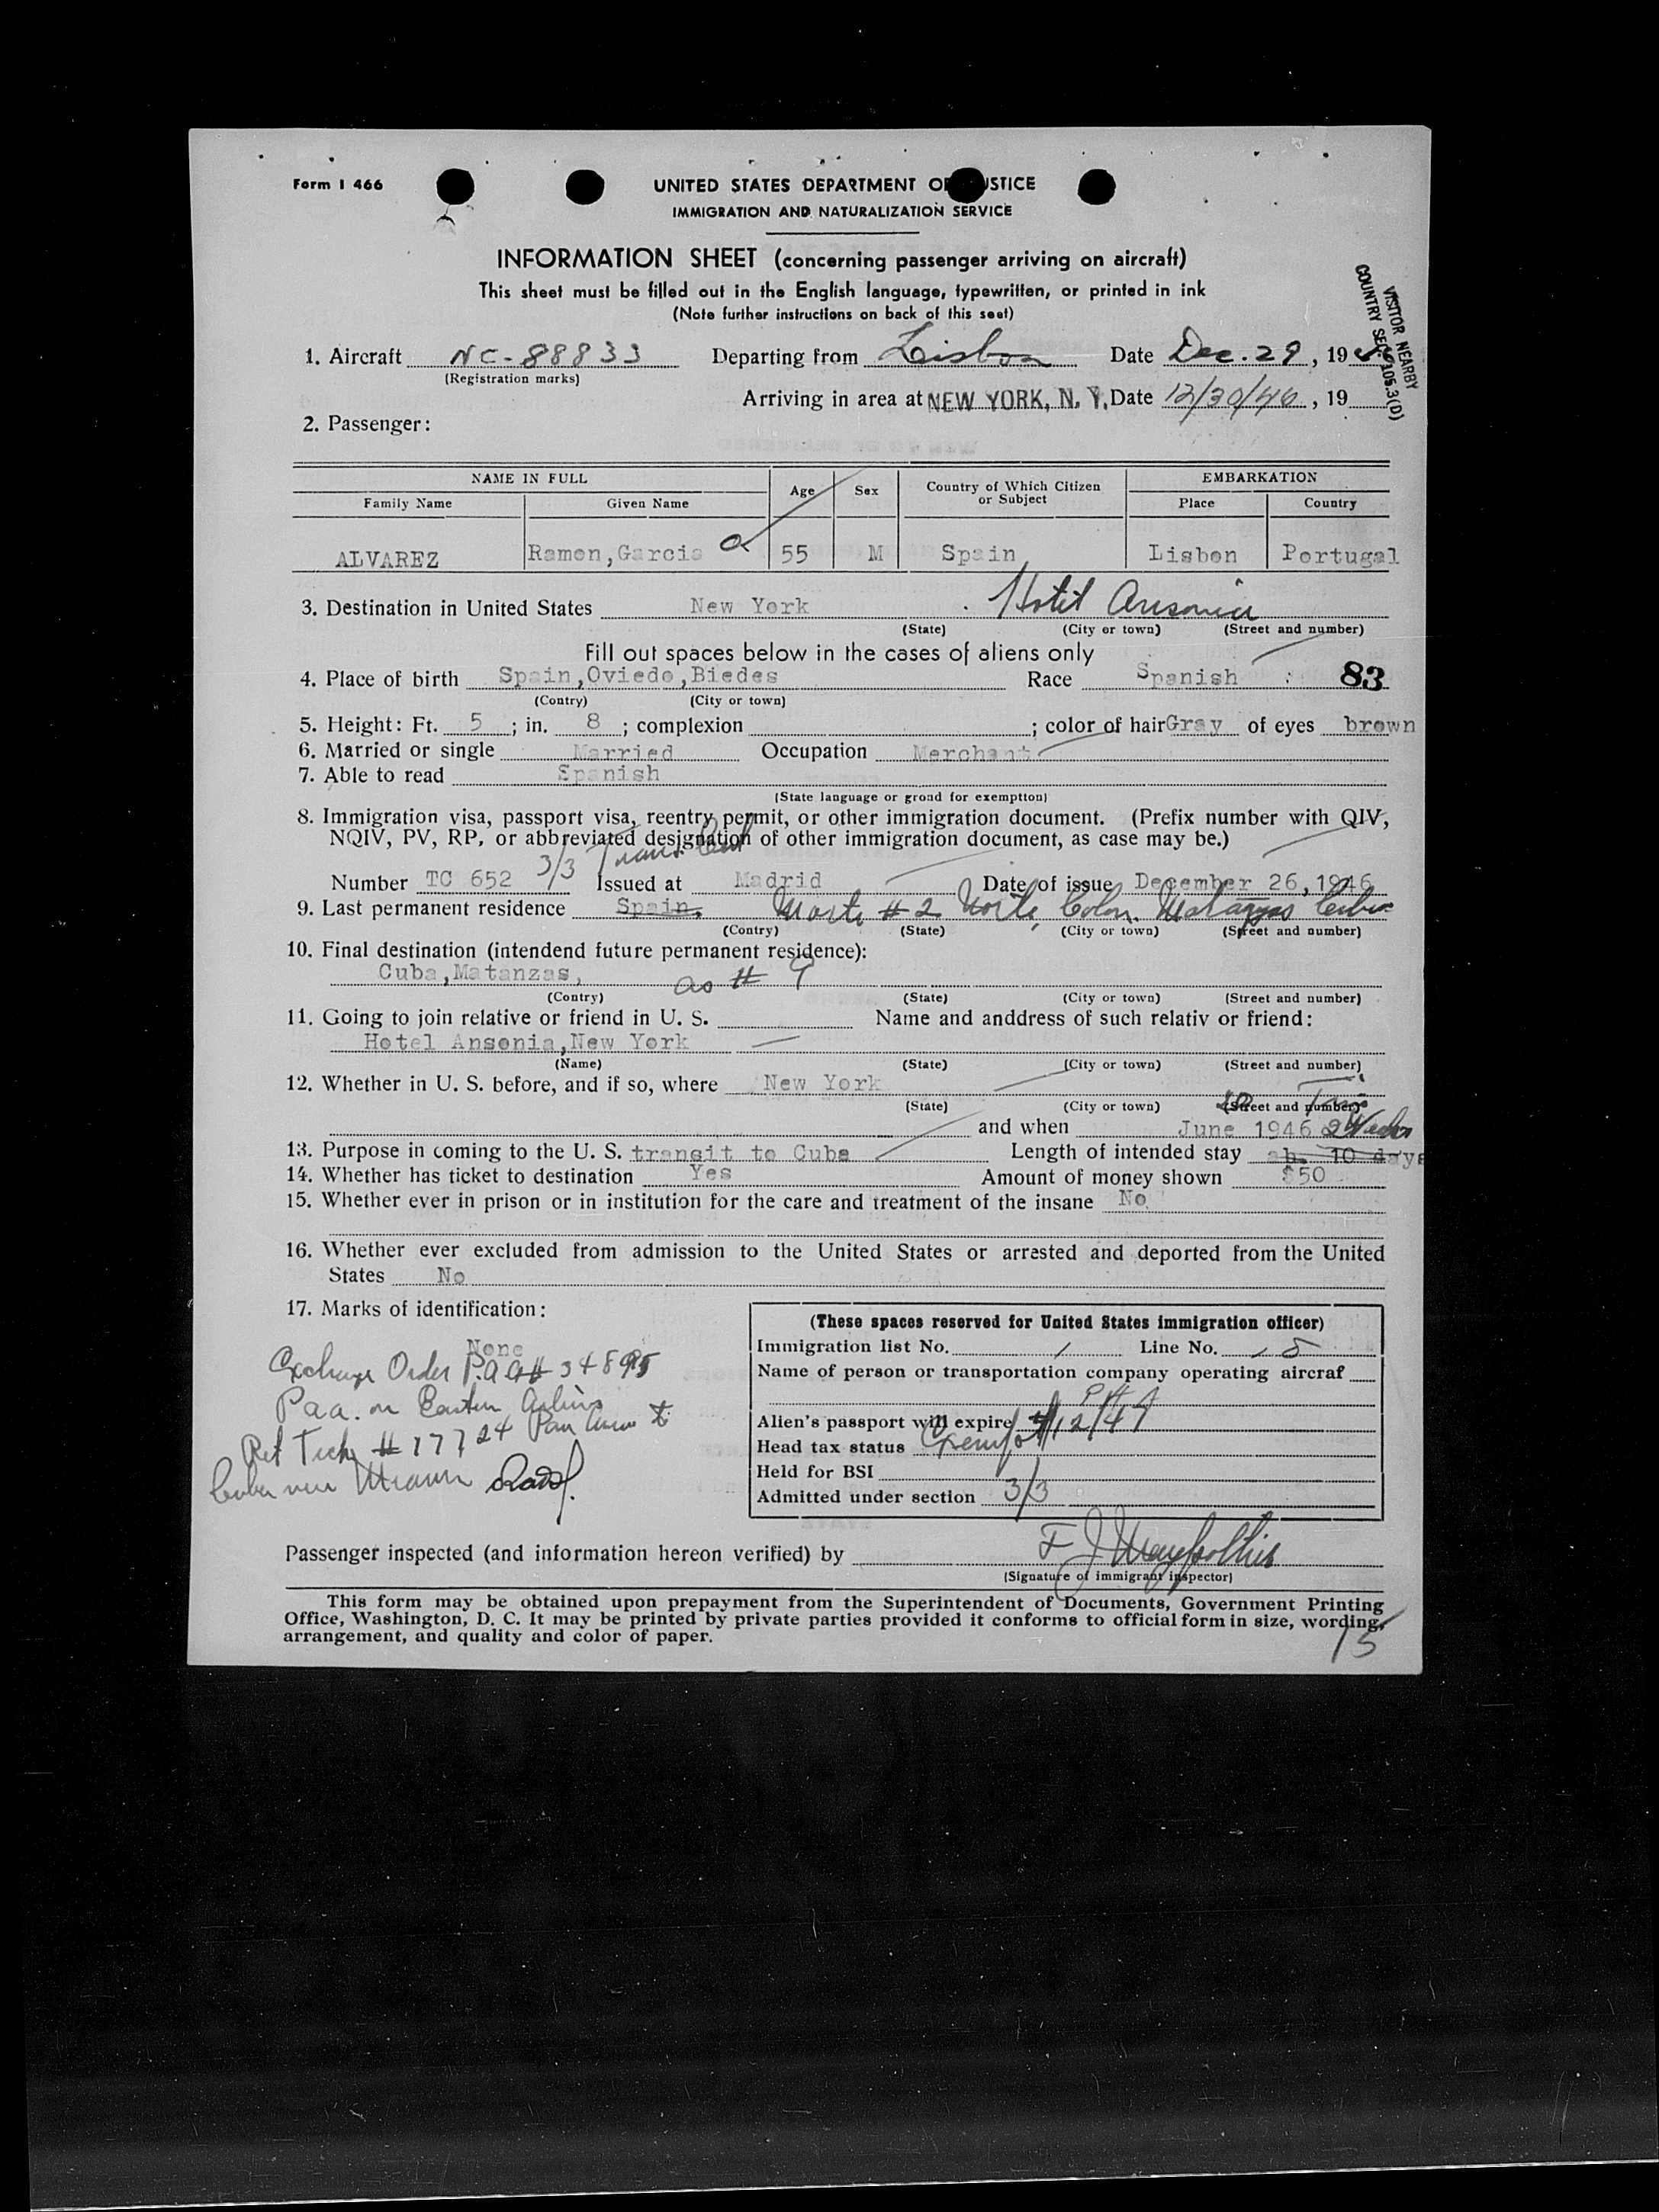 Form I 466
UNITED STATES DEPARTMENT OF JUSTICE
IMMIGRATION AND NATURALIZATION SERVICE
INFORMATION SHEET (concerning passenger arriving on aircraft)
This sheet must be filled out in the English language, typewritten, or printed in ink
(Note further instructions on back of this seet)
VISITOR NEARBY
COUNTRY SEC. 105.3(D)
1. Aircraft NC-88833 Departing from Lisbon Date Dec. 29, 19
(Registration marks)
Arriving in area at NEW YORK, N. Y. Date 12/30/46, 19
2. Passenger:
NAME IN FULL Age Sex Country of Which Citizen or Subject EMBARKATION
Family Name Given Name Place Country
ALVAREZ Ramon,Garcia 55 M Spain Lisbon Portugal
3. Destination in United States New York Hotel Ansonia
(State) (City or town) (Street and number)
Fill out spaces below in the cases of aliens only
4. Place of birth Spain,Oviedo,Biedes Race Spanish 83
(Contry) (City or town)
5. Height: Ft. 5 ; in. 8 ; complexion ; color of hair Gray of eyes brown
6. Married or single Married Occupation Merchant
7. Able to read Spanish
(State language or grond for exemption)
8. Immigration visa, passport visa, reentry permit, or other immigration document. (Prefix number with QIV,
NQIV, PV, RP, or abbreviated designation of other immigration document, as case may be.)
3/3 Trans. Cert
Number TC 652 Issued at Madrid Date of issue December 26,1946
9. Last permanent residence Spain, # 2 Norte, Colon. Matanzas Cuba
(Contry) (State) (City or town) (Street and number)
10. Final destination (intendend future permanent residence):
Cuba,Matanzas, as # 9
(Contry) (State) (City or town) (Street and number)
11. Going to join relative or friend in U. S. Name and anddress of such relativ or friend:
Hotel Ansonia,New York
(Name) (State) (City or town) (Street and number)
12. Whether in U. S. before, and if so, where New York
(State) (City or town) (Street and number)
and when June 1946 2 Weeks
13. Purpose in coming to the U. S. transit to Cuba Length of intended stay ab. 10 days
14. Whether has ticket to destination Yes Amount of money shown $50
15. Whether ever in prison or in institution for the care and treatment of the insane No
16. Whether ever excluded from admission to the United States or arrested and deported from the United
States No
17. Marks of identification:
None
Exchange Order P.a.a # 34895
Paa. on Eastern Airlines
Ret Tick # 17724 Pan Amer to
Cuba via Miami
(These spaces reserved for United States immigration officer)
Immigration list No. 1 Line No. 5
Name of person or transportation company operating aircraf
PAA
Alien's passport will expire 4/12/49
Head tax status Exempt
Held for BSI
Admitted under section 3/3
Passenger inspected (and information hereon verified) by
(Signature of immigrant inspector)
This form may be obtained upon prepayment from the Superintendent of Documents, Government Printing
Office, Washington, D. C. It may be printed by private parties provided it conforms to official form in size, wording,
arrangement, and quality and color of paper.
15